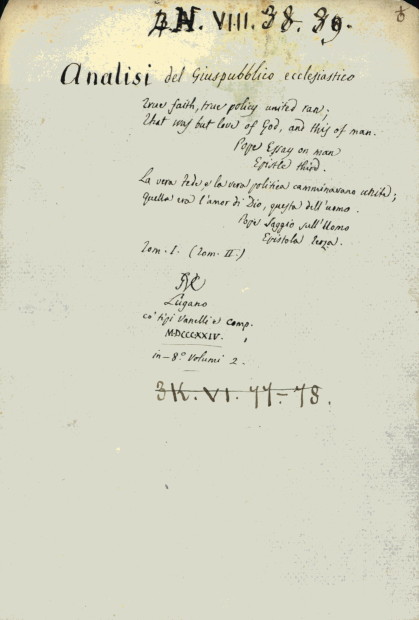 N. VIII. 38-39.
Analisi del Giuspubblico ecclesiastico
True faith, true policy united ran;
That was but love of God, and this of man.
Pope Essay on man
Epistle third.
La vera fede e la vera politica camminavano unite;
quella era l'amor di Dio, questa dell'uomo.
Pope Saggio sull'Uomo
Epistola terza.
Tom. I. (Tom. II.)
Lugano
co' tipi Vanelli e comp.
MDCCCXXIV.
in-8.° Volumi 2.
3K. VI. 77-78.